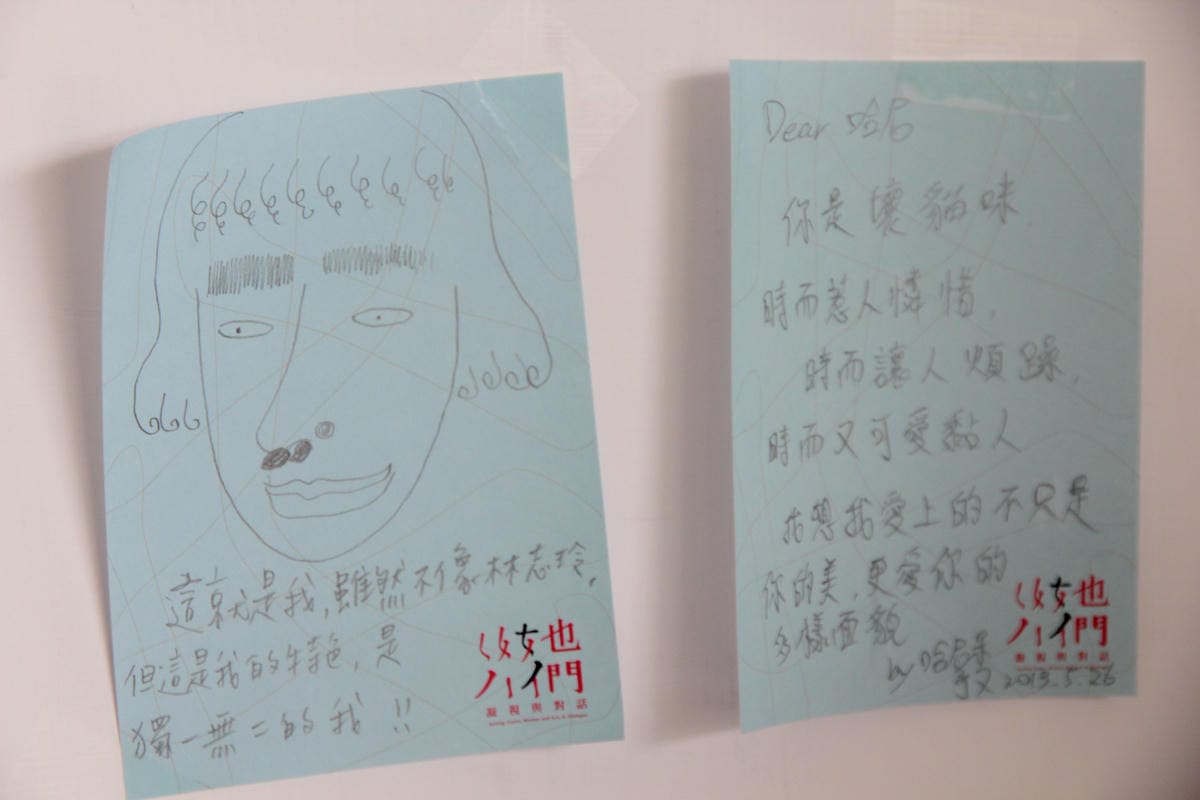 這就是我,雖然不像林志玲,
但這是我的特艷,是
獨一無二的我!!
凝視與對話
Dear 哈尼
你是壞貓咪.
時而惹人憐惜,
時而讓人煩躁,
時而又可愛黏人
我想我愛上的不只是
你的美,更愛你的
多樣面貌
by 哈尼
2013.5.26
凝視與對話